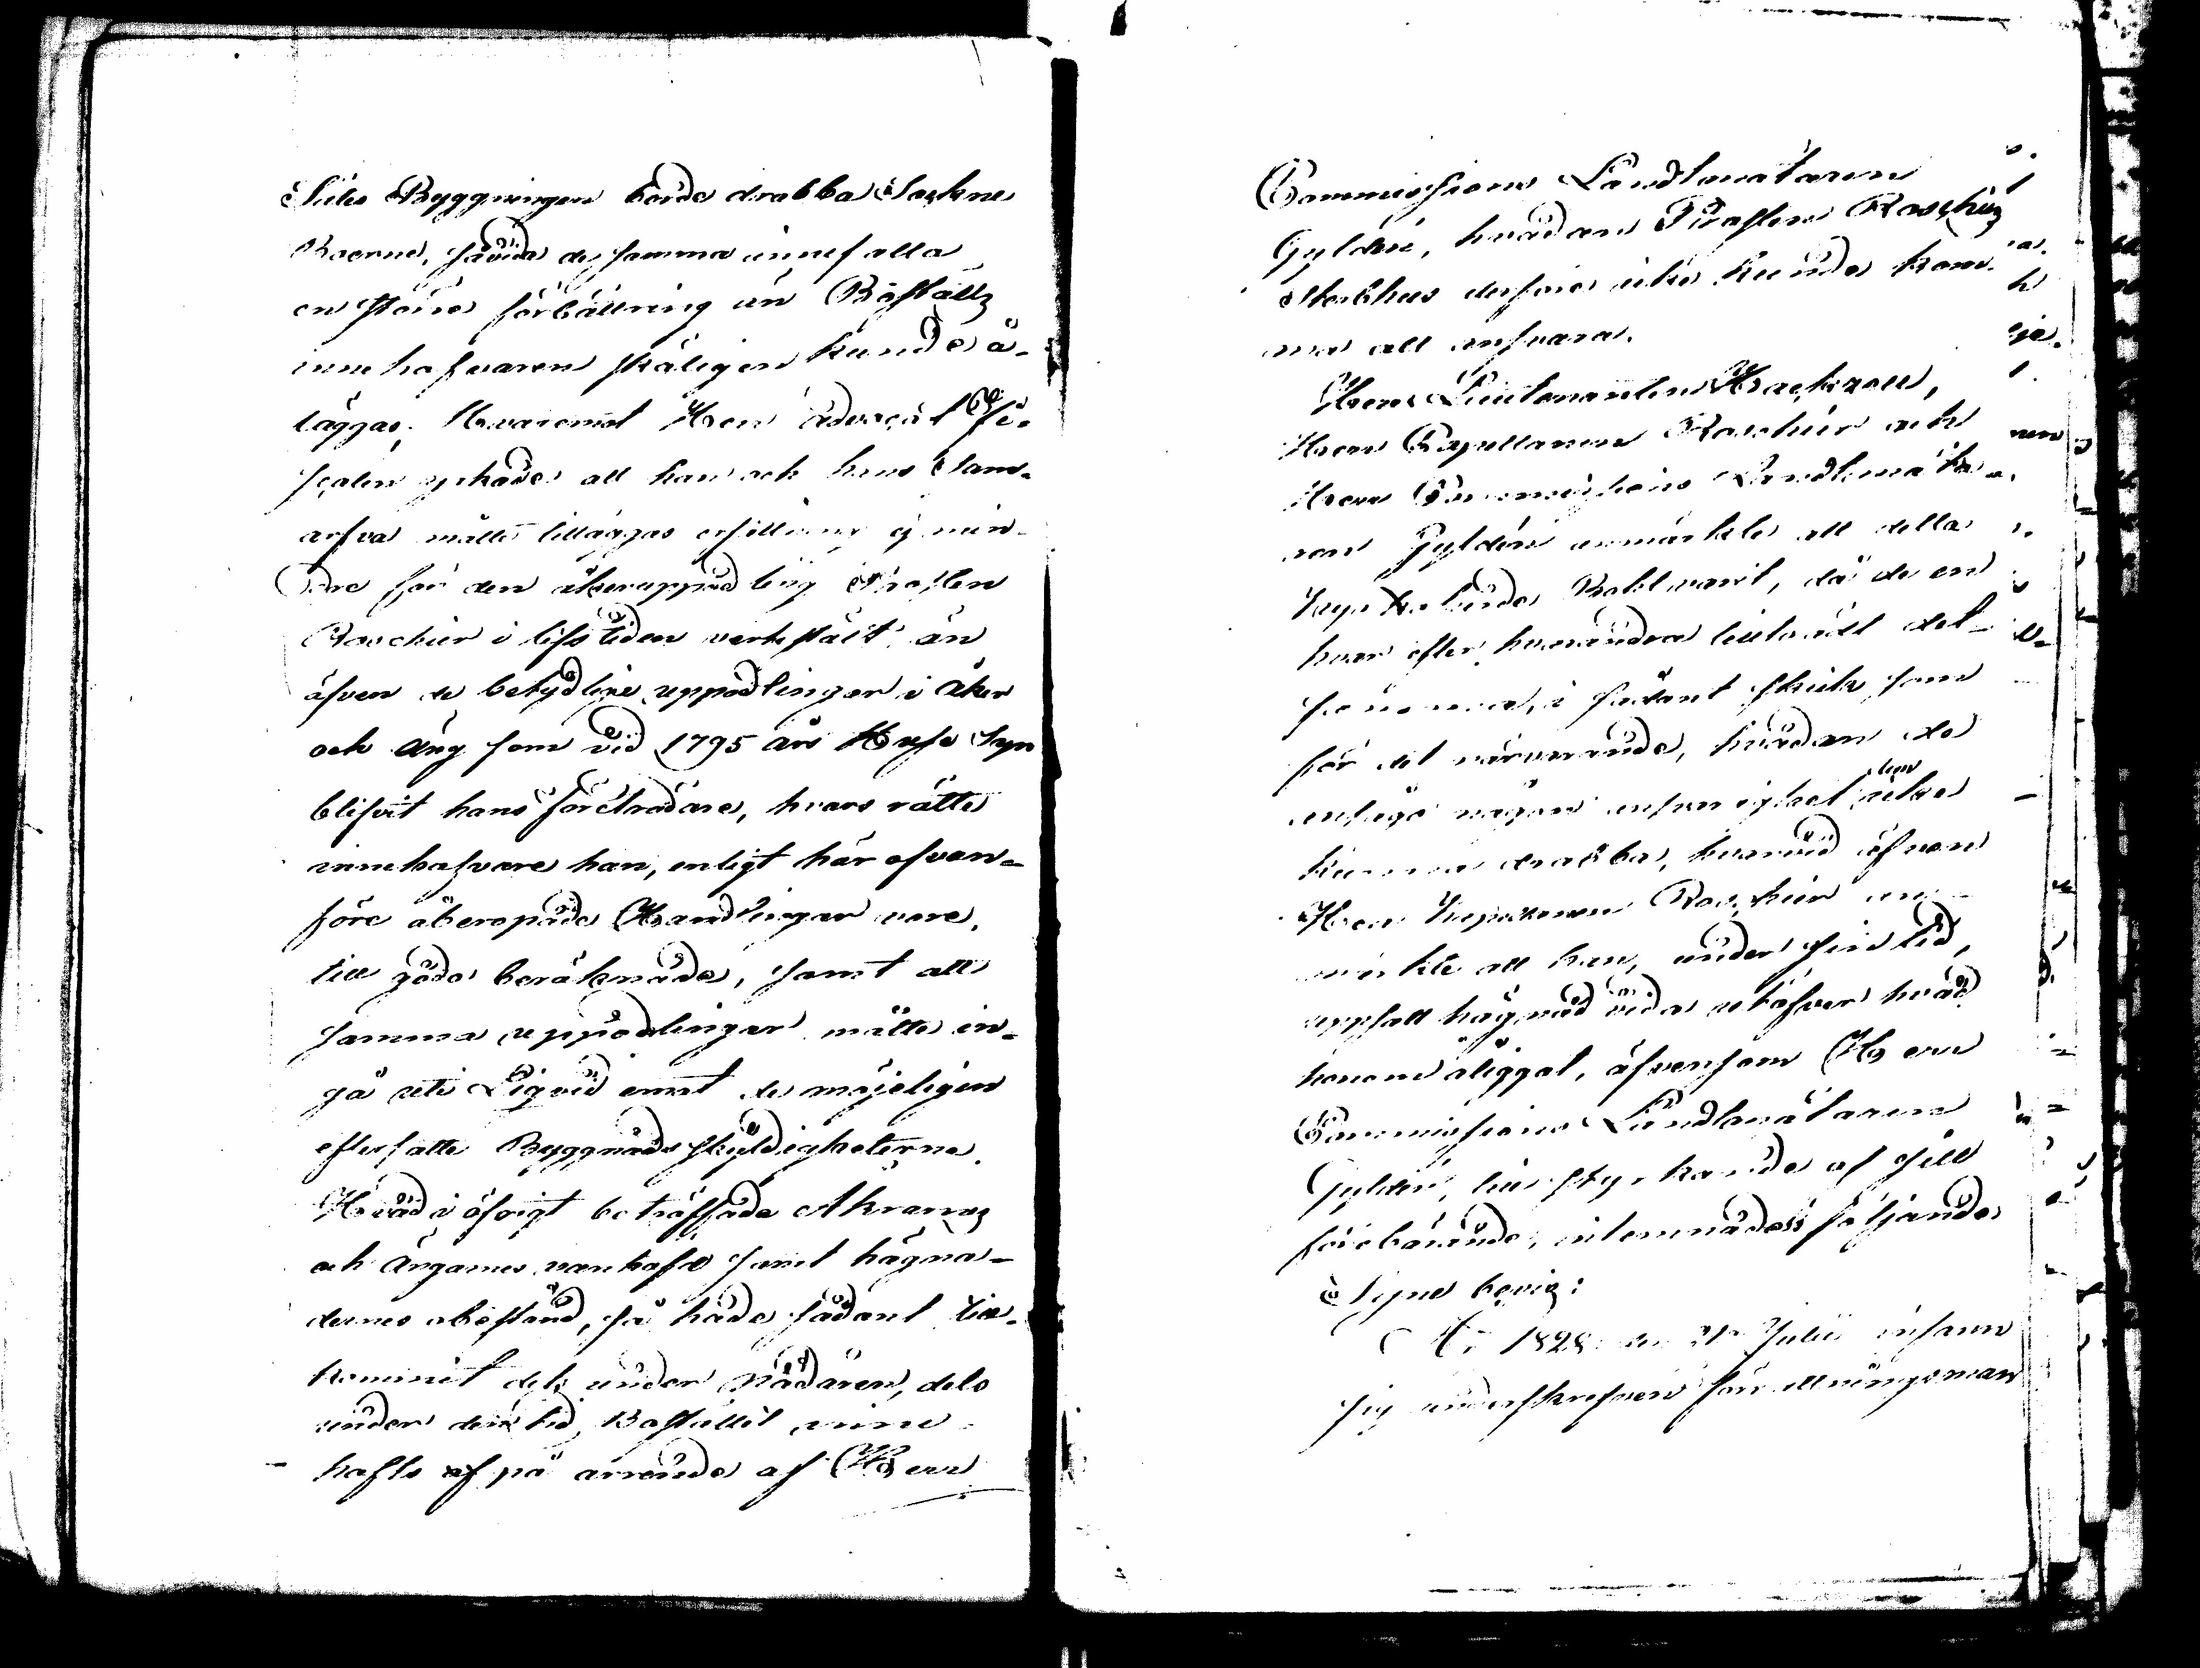 Sides Byggningen borde drabba Sockne
Boerne, såvida de samma innefalla
en större förbättring än Boställz
innehafvaren skäligen kunde å-
läggas; Hvaremot Herr Advocat Fi-
scalen yrkade att han och hans Sam-
arfvar måtte tilläggas ersättning ej min-
dre för den åkeruppodling Prosten
Raschier i lifstiden verkstält än
äfven de betydlige uppodlingar i åker
och äng som vid 1795 års Husesyn
blifvit hans företrädare, hvars rätts
innehafvare han, enligt här ofvan-
före åberopade Handlingar vore,
till godo beräknade, samt att
samma uppodlingar måtte in-
gå uti Liqvid emot de möjeligen
eftersatte Byggnads skyldigheterne.
Hvad i öfrigt beträffade Åkrarnes
och Ängarnes vanhäfd samt hägna-
dernes obestånd, så hade sådant till-
kommit dels under Nådåren, dels
under den tid Bostället inne-
hafts af på arrende af Herr
Commissions Landtmätaren
Gyldén, hvadan Prosten Raschiers
Sterbhus derföre icke kunde kom-
ma att ansvara.
Herr Lieutenanten Hackzell,
Herr Capellanen Raschier och
Herr Commissions Landtmäta-
ren Gyldén anmärkte att detta
Boställe varit, då de en
hvar efter hvarandra tillträdt det-
samma, i sådant skick som
för det närvarande, hvadan de
ansågo någon ansvarighet dem icke
kunna drabba, hvarvid äfven
Herr Capellanen Raschier an-
märkte att han, under sin tid,
uppsatt hägnad vida utöfver hvad
honom åliggat, äfvensom Herr
Commissions Landtmätaren
Gyldén, till styrkande af sitt
förebärande, inlemnade följande
Syne bevis:
År 1828 den 21 Julii infann
sig underskrefven förrättningsman